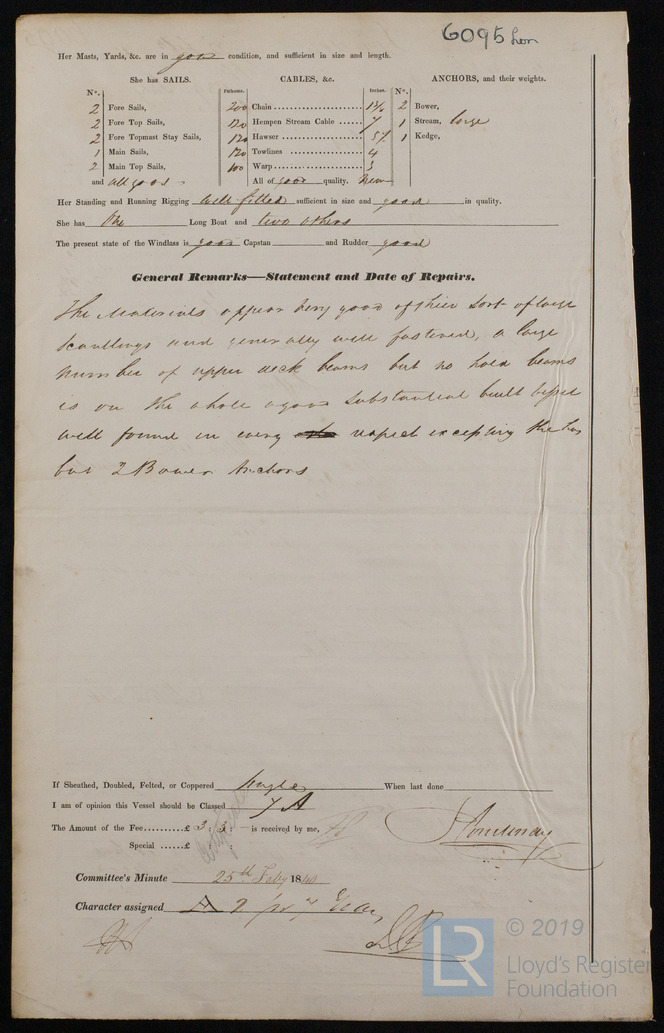 6095 Lon
Her Masts, Yards, &c. are in good condition, and sufficient in size and length.
She has SAILS. CABLES, &c. ANCHORS, and their weights.
No. Fathoms. Inches. No.
2 Fore Sails, 200 Chain 2 Bower,
2 Fore Top Sails, 120 Hempen Stream Cable 7 1 Stream, large
2 Fore Topmast Stay Sails, 120 Hawser 5½ 1 Kedge,
1 Main Sails, 120 Towlines 4
2 Main Top Sails, 100 Warp 3
and all good All of good quality. New
Her Standing and Running Rigging Well fitted sufficient in size and good in quality.
She has One Long Boat and two others
The present state of the Windlass is good Capstan and Rudder good
General Remarks—Statement and Date of Repairs.
The Materials appear very good of their Sort of large
Scantlings and generally well fastened, a large
number of upper deck beams but no hold beams
is on the whole a good Substantial built vessel
well found in every respect excepting She has
but 2 Bower Anchors
If Sheathed, Doubled, Felted, or Coppered Single When last done
I am of opinion this Vessel should be Classed 7 A
The Amount of the Fee..........£ 3 : 3 : — is received by me,
Special ......£ : :
Committee's Minute 25th Feby 1840
Character assigned A for 7 Years
LR
© 2019
Lloyd's Register
Foundation